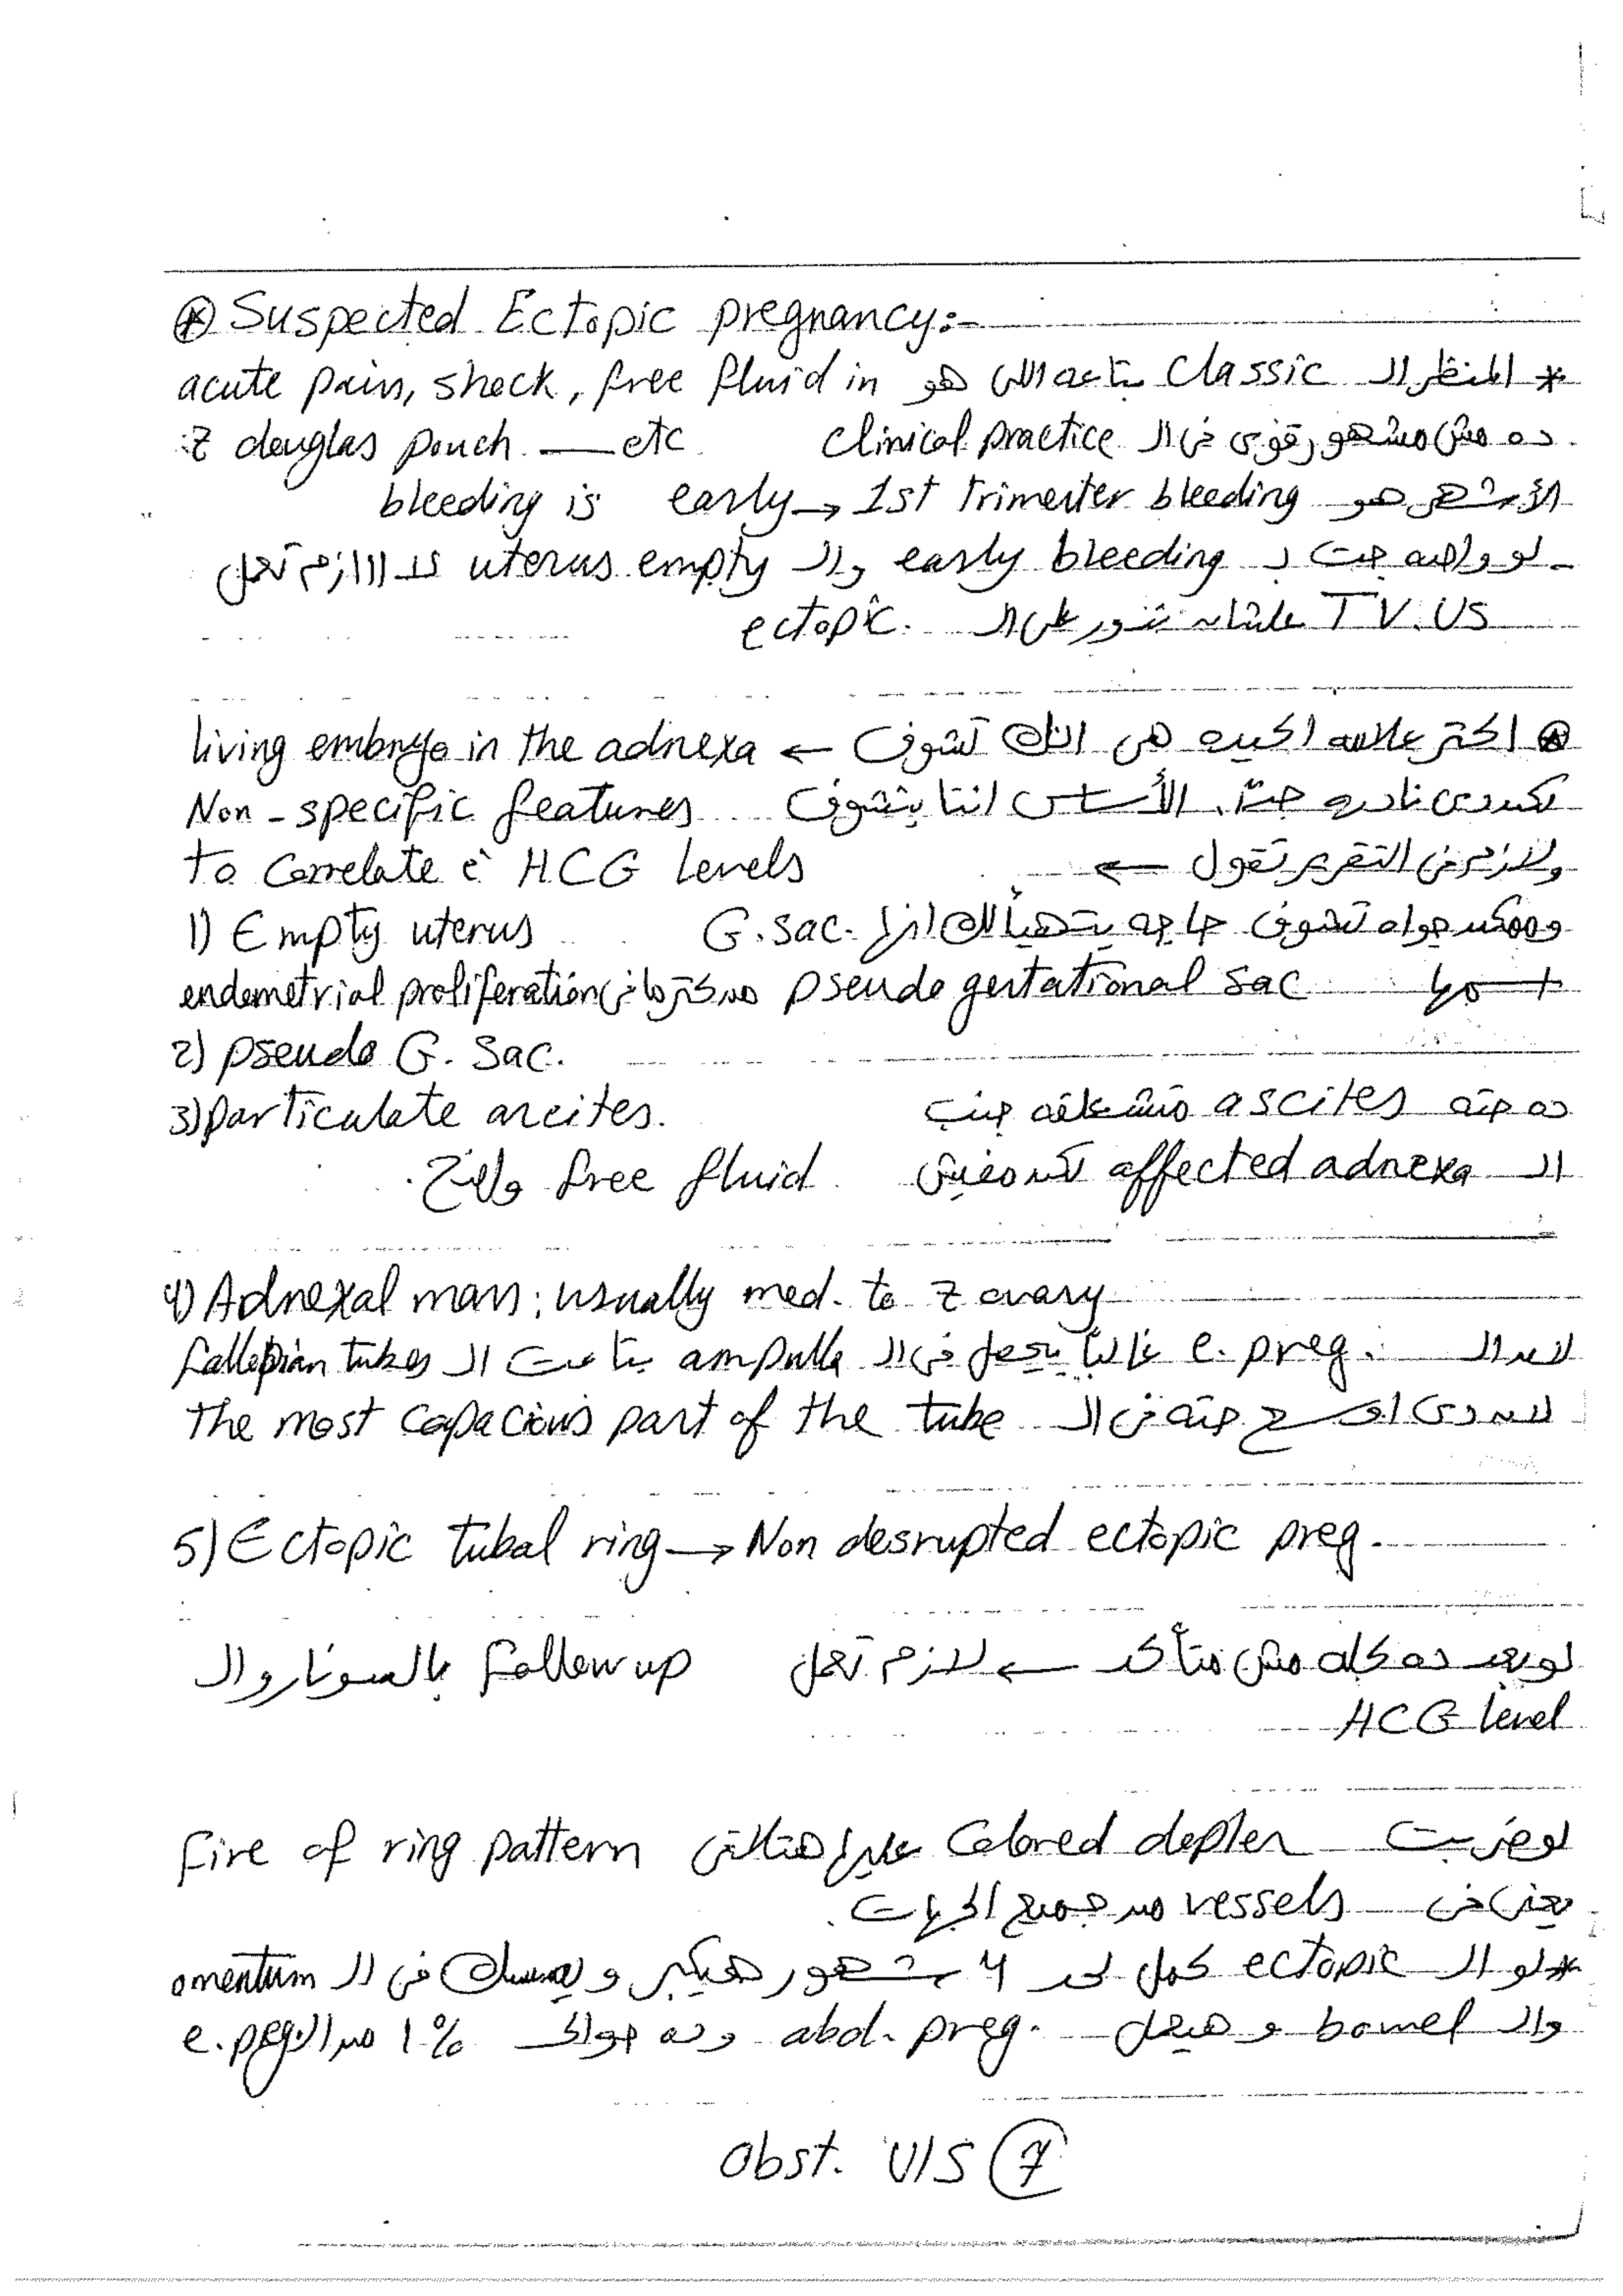 ⊛ Suspected Ectopic pregnancy:-
* المنظر الـ classic بتاعه اللى هو acute pain, shock, free fluid in
z douglas pouch — etc ده مش مشهور قوى فى الـ clinical practice
الأشهر هو bleeding is early → 1st trimester bleeding
ـ لو واحده جت بـ early bleeding والـ uterus empty لازم تعمل
TV.US علشان تدور على الـ ectopic.
⊛ اكتر علامه اكيده هى انك تشوف ← living embryo in the adnexa
لكن دى نادره جداً. الأساس انتا بتشوف Non-specific features
ولازم فى التقرير تقول ← to Correlate c̄ HCG Levels
1) Empty uterus وممكن جواه تشوف حاجه يتهيألك انها G.sac.
pseudo gestational sac من كتر ما فى endometrial proliferation
2) pseudo G. Sac.
3) particulate ascites. ده حته ascites متعلقه جنب
الـ affected adnexa لكن مفيش free fluid واضح.
4) Adnexal mass; usually med. to z ovary
لان الـ e. preg. غالباً بيحصل فى الـ ampulla بتاعت الـ fallopian tubes
لان دى اوسع حته فى الـ the most capacious part of the tube
5) Ectopic tubal ring → Non desrupted ectopic preg.
لو بعد ده كله مش متأكد ← لازم تعمل follow up بالسونار والـ
HCG level
لو ضربت Colored depler عليها هتلاقى fire of ring pattern
يعنى فى vessels من جميع الجهات.
* لو الـ ectopic كمل لحد ٤ شهور هيكبر و يمسك فى الـ omentum
والـ bowel و هيعمل abd. preg. و ده حوالى 1% من الـ e. preg.
Obst. U/S 7